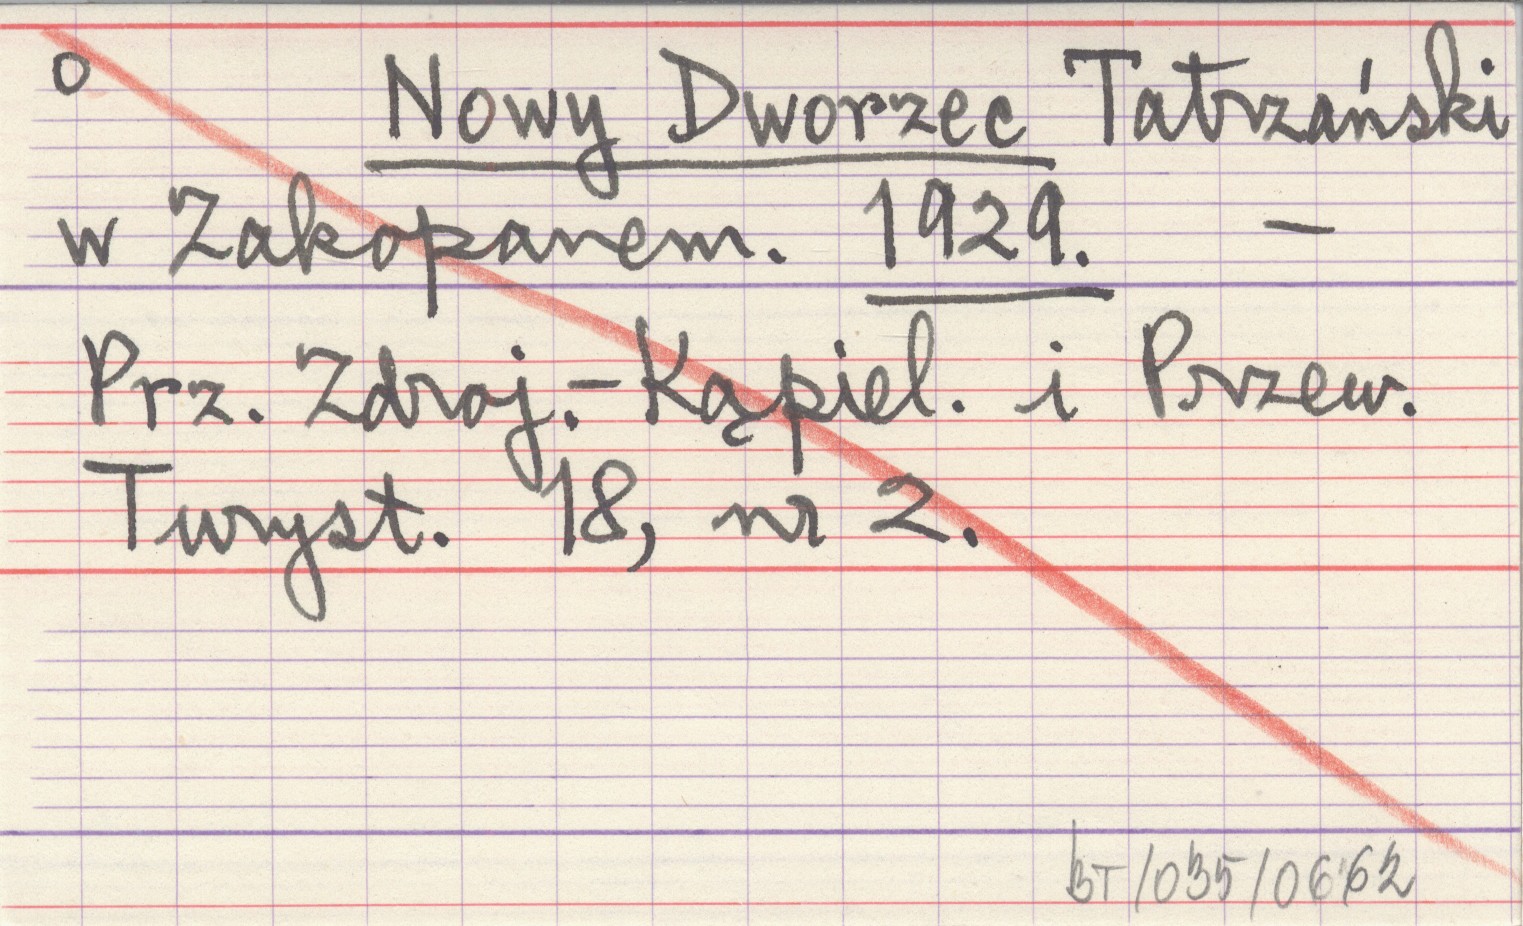 o Nowy Dworzec Tatrzański
w Zakopanem. 1929. –
Prz. Zdroj.-Kąpiel. i Przew.
Turyst. 18, nr 2.
BT/035/0662